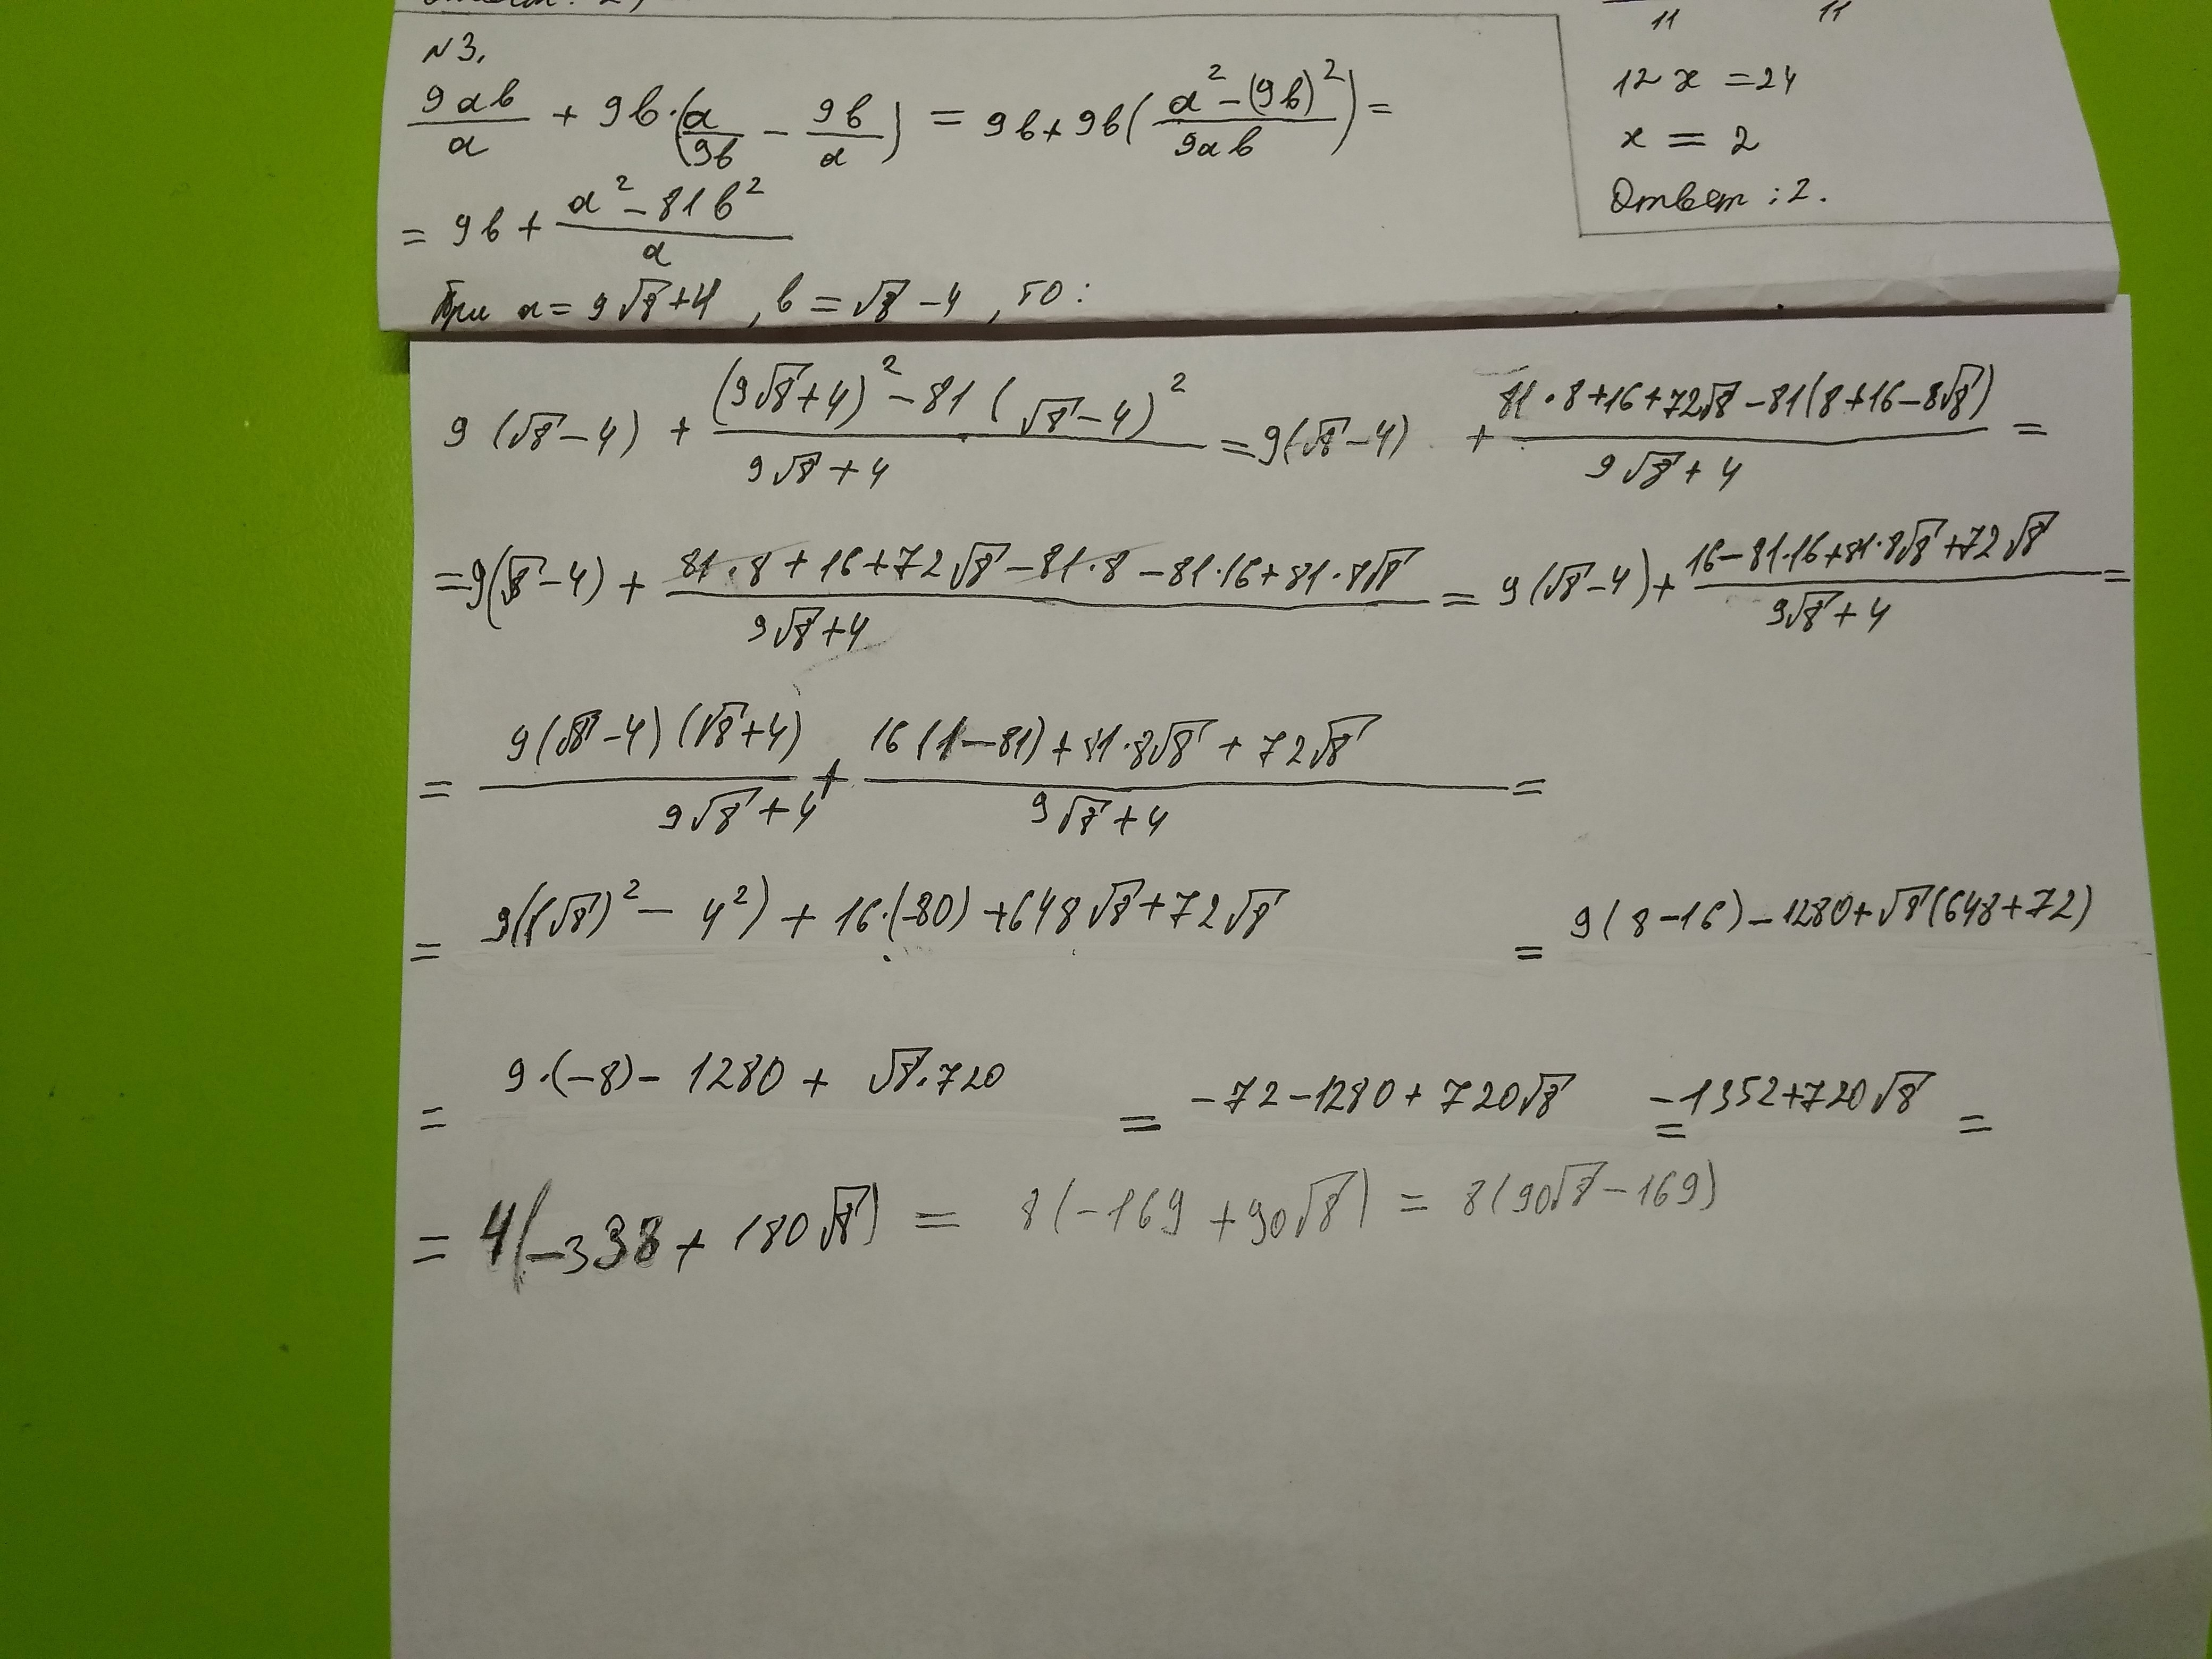 11 11
N3.
9ab/a + 9b·(a/9b − 9b/a) = 9b + 9b((a² − (9b)²)/9ab) =
12x = 24
x = 2
Ответ: 2.
= 9b + (a² − 81b²)/a
При a = 9√8 + 4, b = √8 − 4, то:
9(√8 − 4) + ((9√8 + 4)² − 81(√8 − 4)²)/(9√8 + 4) = 9(√8 − 4) + (81·8 + 16 + 72√8 − 81(8 + 16 − 8√8))/(9√8 + 4) =
= 9(√8 − 4) + (81·8 + 16 + 72√8 − 81·8 − 81·16 + 81·8√8)/(9√8 + 4) = 9(√8 − 4) + (16 − 81·16 + 81·8√8 + 72√8)/(9√8 + 4) =
= 9(√8 − 4)(√8 + 4)/(9√8 + 4) + (16(1 − 81) + 81·8√8 + 72√8)/(9√8 + 4) =
= 9((√8)² − 4²) + 16·(−80) + 648√8 + 72√8 = 9(8 − 16) − 1280 + √8(648 + 72)
= 9·(−8) − 1280 + √8·720 = −72 − 1280 + 720√8 = −1352 + 720√8 =
= 4(−338 + 180√8) = 8(−169 + 90√8) = 8(90√8 − 169)